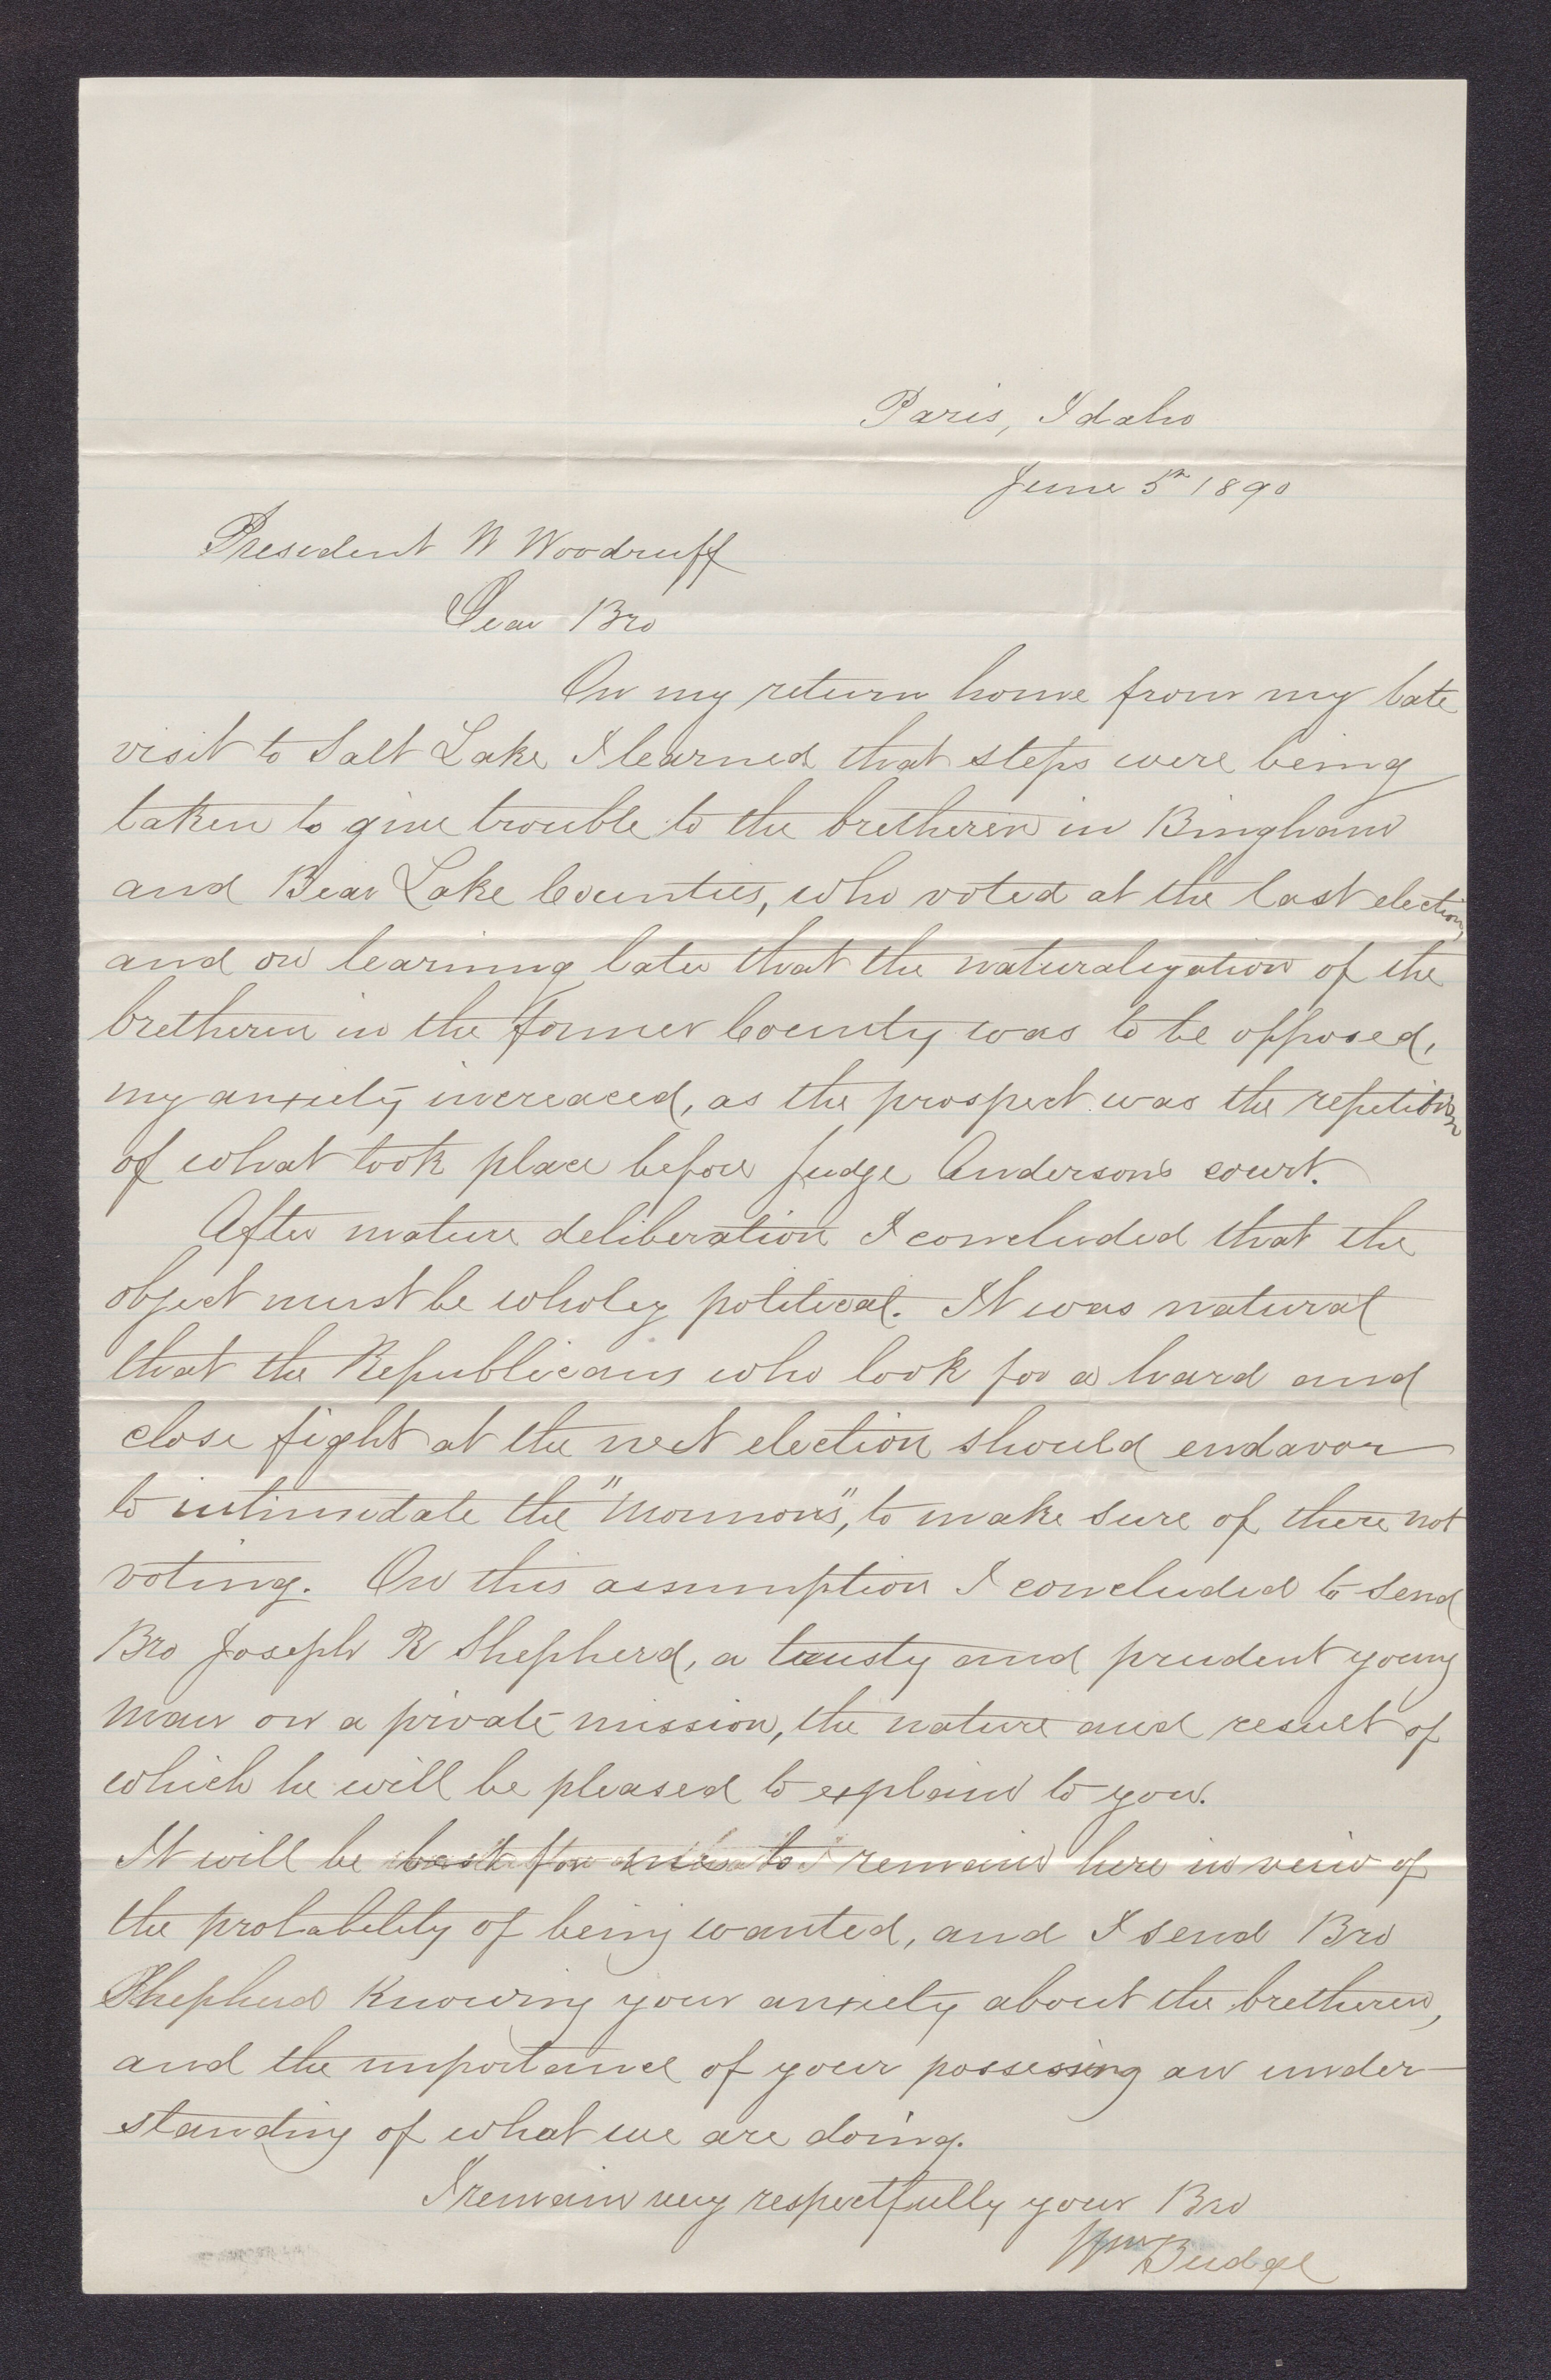 Paris, Idaho
June 5th 1890
President W Woodruff
Dear Bro
On my return home from my late
visit to Salt Lake I learned that steps were being
taken to give trouble to the bretheren in Bingham
and Bear Lake Counties, who voted at the last election,
and on learning later that the naturalization of the
bretheren in the former County was to be opposed,
my anxiety increaced, as the prospect was the repetition
of what took place before Judge Anderson's court.
After mature deliberation I concluded that the
object must be wholey political. It was natural
that the Republicans who look for a hard and
close fight at the next election should endavor
to intimidate the "Mormons", to make sure of there not
voting. On this assumption I concluded to send
Bro Joseph R Shepherd, a trusty and prudent young
man on a private mission, the nature and result of
which he will be pleased to explain to you.
It will be best for me to remain here in veiw of
the probability of being wanted, and I send Bro
Shepherd knowing your anxiety about the bretheren,
and the importance of your possessing an under-
standing of what we are doing.
I remain very respectfully your Bro
Wm Budge